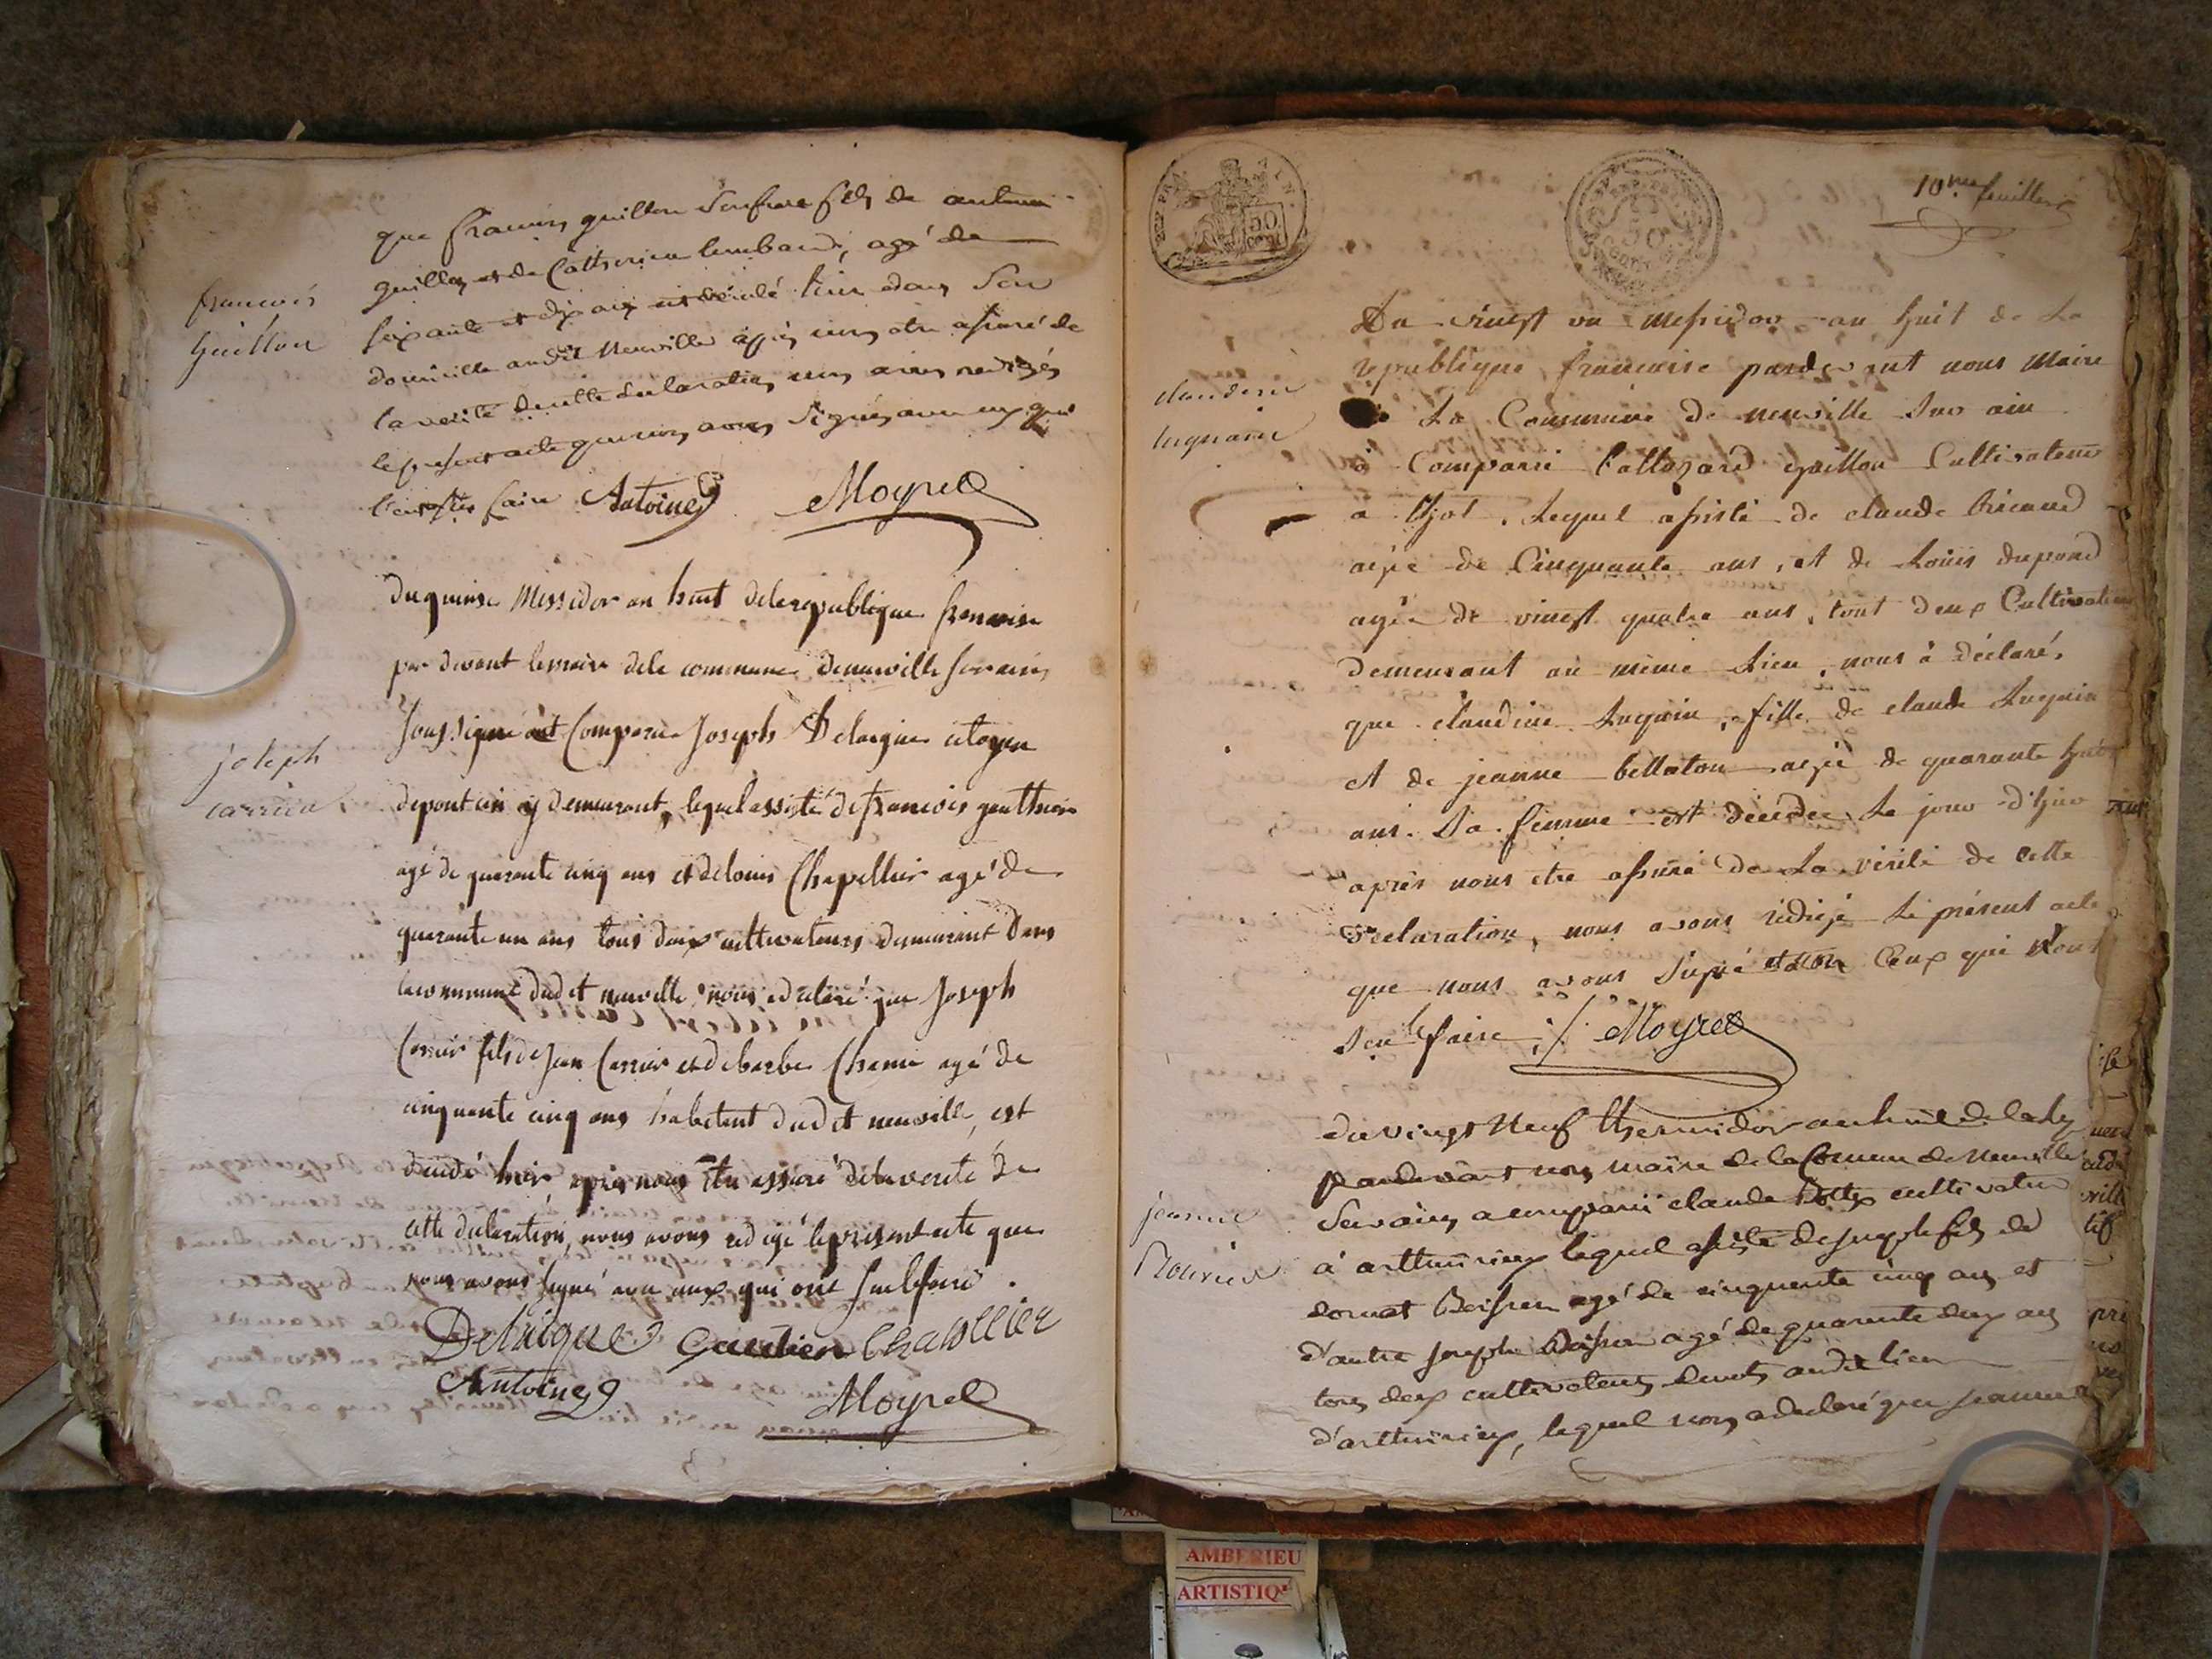 françois
Guillon
que françois guillon son frere fils de antoine
guillon et de Catherine lombard, agé de
soixante et dix ans est décédé hier dans son
domicille audit Neuville après nous etre assuré de
la verité de cette declaration nous avons redigés
le present acte que nous avons signés avec eux qui
l'ont sçu faire Antoine Moyret
joseph
carrier
du quinse Messidor an huit de la republique françoise
par devant le maire de la commune de neuville sur ain
soussigné est Comparu Joseph Delaigue citoyen
de pont ain y demeurant, lequel assisté de francois gauthier
agé de quarante cinq ans et de louis Chapellier agé de
quarante un ans tous deux cultivateurs demeurant dans
la commune dudit neuville nous a déclaré que Joseph
Carrier fils de Jean Carrier et de barbe Chanie agé de
cinquante cinq ans habitant dudit neuville, est
décédé hier après nous être assuré de la verité de
cette declaration, nous avons redigé le présent acte que
nous avons signé avec eux qui ont su le faire.
Delaigue Gautier Chapellier
Antoine Moyret
REP FRA
50
CENT
50
10me feuillet
claudine
luguain
Du vingt un messidor an huit de La
republique françoise pardevant nous Maire
La Commune de neuville sur ain
à Comparu Baltazard guillon Cultivateur
à Thiol, Lequel assisté de claude Bricaud
agée de Cinquante ans, et de Louis dupond
agée de vingt quatre ans, tout deux Cultivateur
demeurant au même Lieu, nous à déclaré,
que claudine Luguin, fille de claude Luguin
et de jeanne bellaton agée de quarante huit
ans. Sa femme est décédée Le jour d'hier
après nous etre assuré de La vérité de cette
déclaration, nous avons rédigé Le présent acte
que nous avons signé Ceux qui n'ont
sçu le faire ;/. Moyret
jeanne
du vingt Neuf thermidor an huit de la Rep
pardevant nous maire de la Comune de Neuville
sur ain, a comparu claude cultivateur
à arthuirieux lequel assisté de joseph fils de
donnat Boisson agé de cinquante cinq ans et
d'autre joseph Boisson agé de quarante deux ans
tous deux cultivateurs demts audit lieu
d'arthuirieux, lequel nous a declaré que jeanne
AMBERIEU
ARTISTIQ